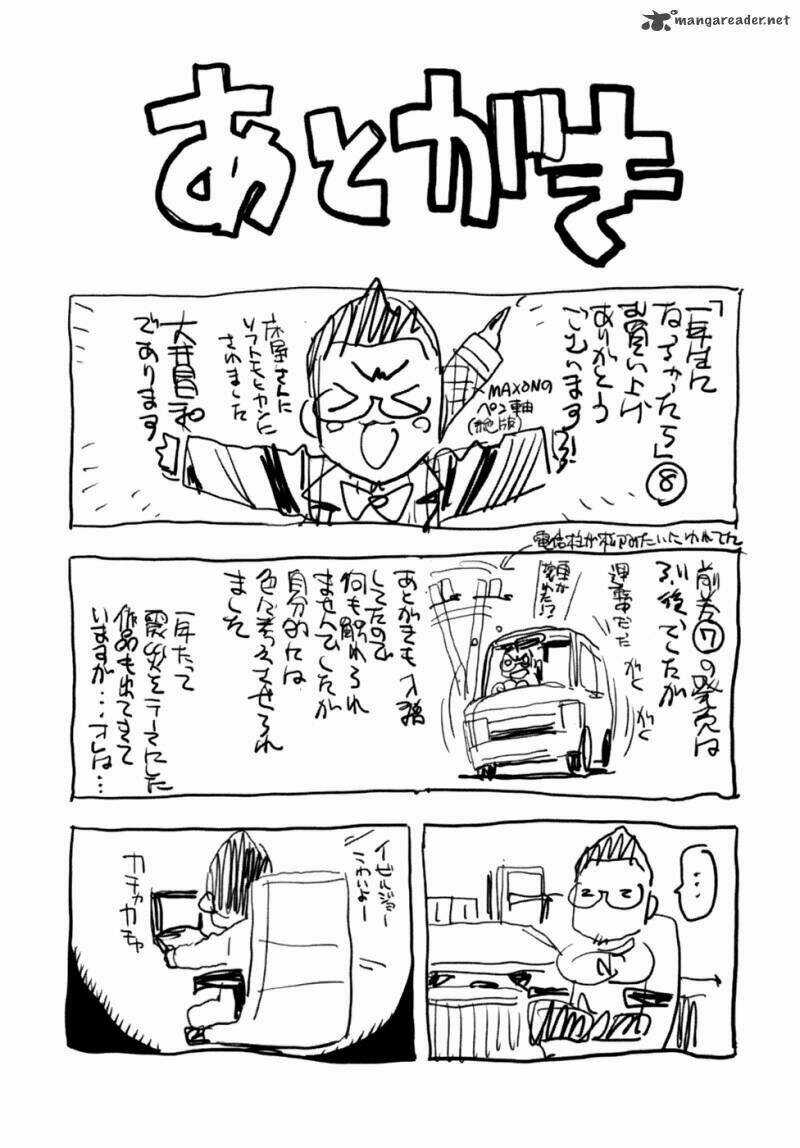 mangareader.net
あとがき
「一年生に
なっちゃったら」⑧
お買い上げ
ありがとう
ございます!
MAXONの
ペン軸
(絶版)
床屋さんに
ソフトモヒカンに
されました
大井昌和
であります
電信柱が
みたいにゆれてた
前巻⑦の発売は
震災後でしたが
運転中だった
車が
壊れた!?
ガク
ガク
あとがきも入稿
してたので
何も触れられ
ませんでしたが
自分的には
色々考えさせられ
ました
一年たって
震災をテーマにした
作品も出てきて
いますが…オレは…
…
イゼルジョー
こわいよー
カチャカチャ